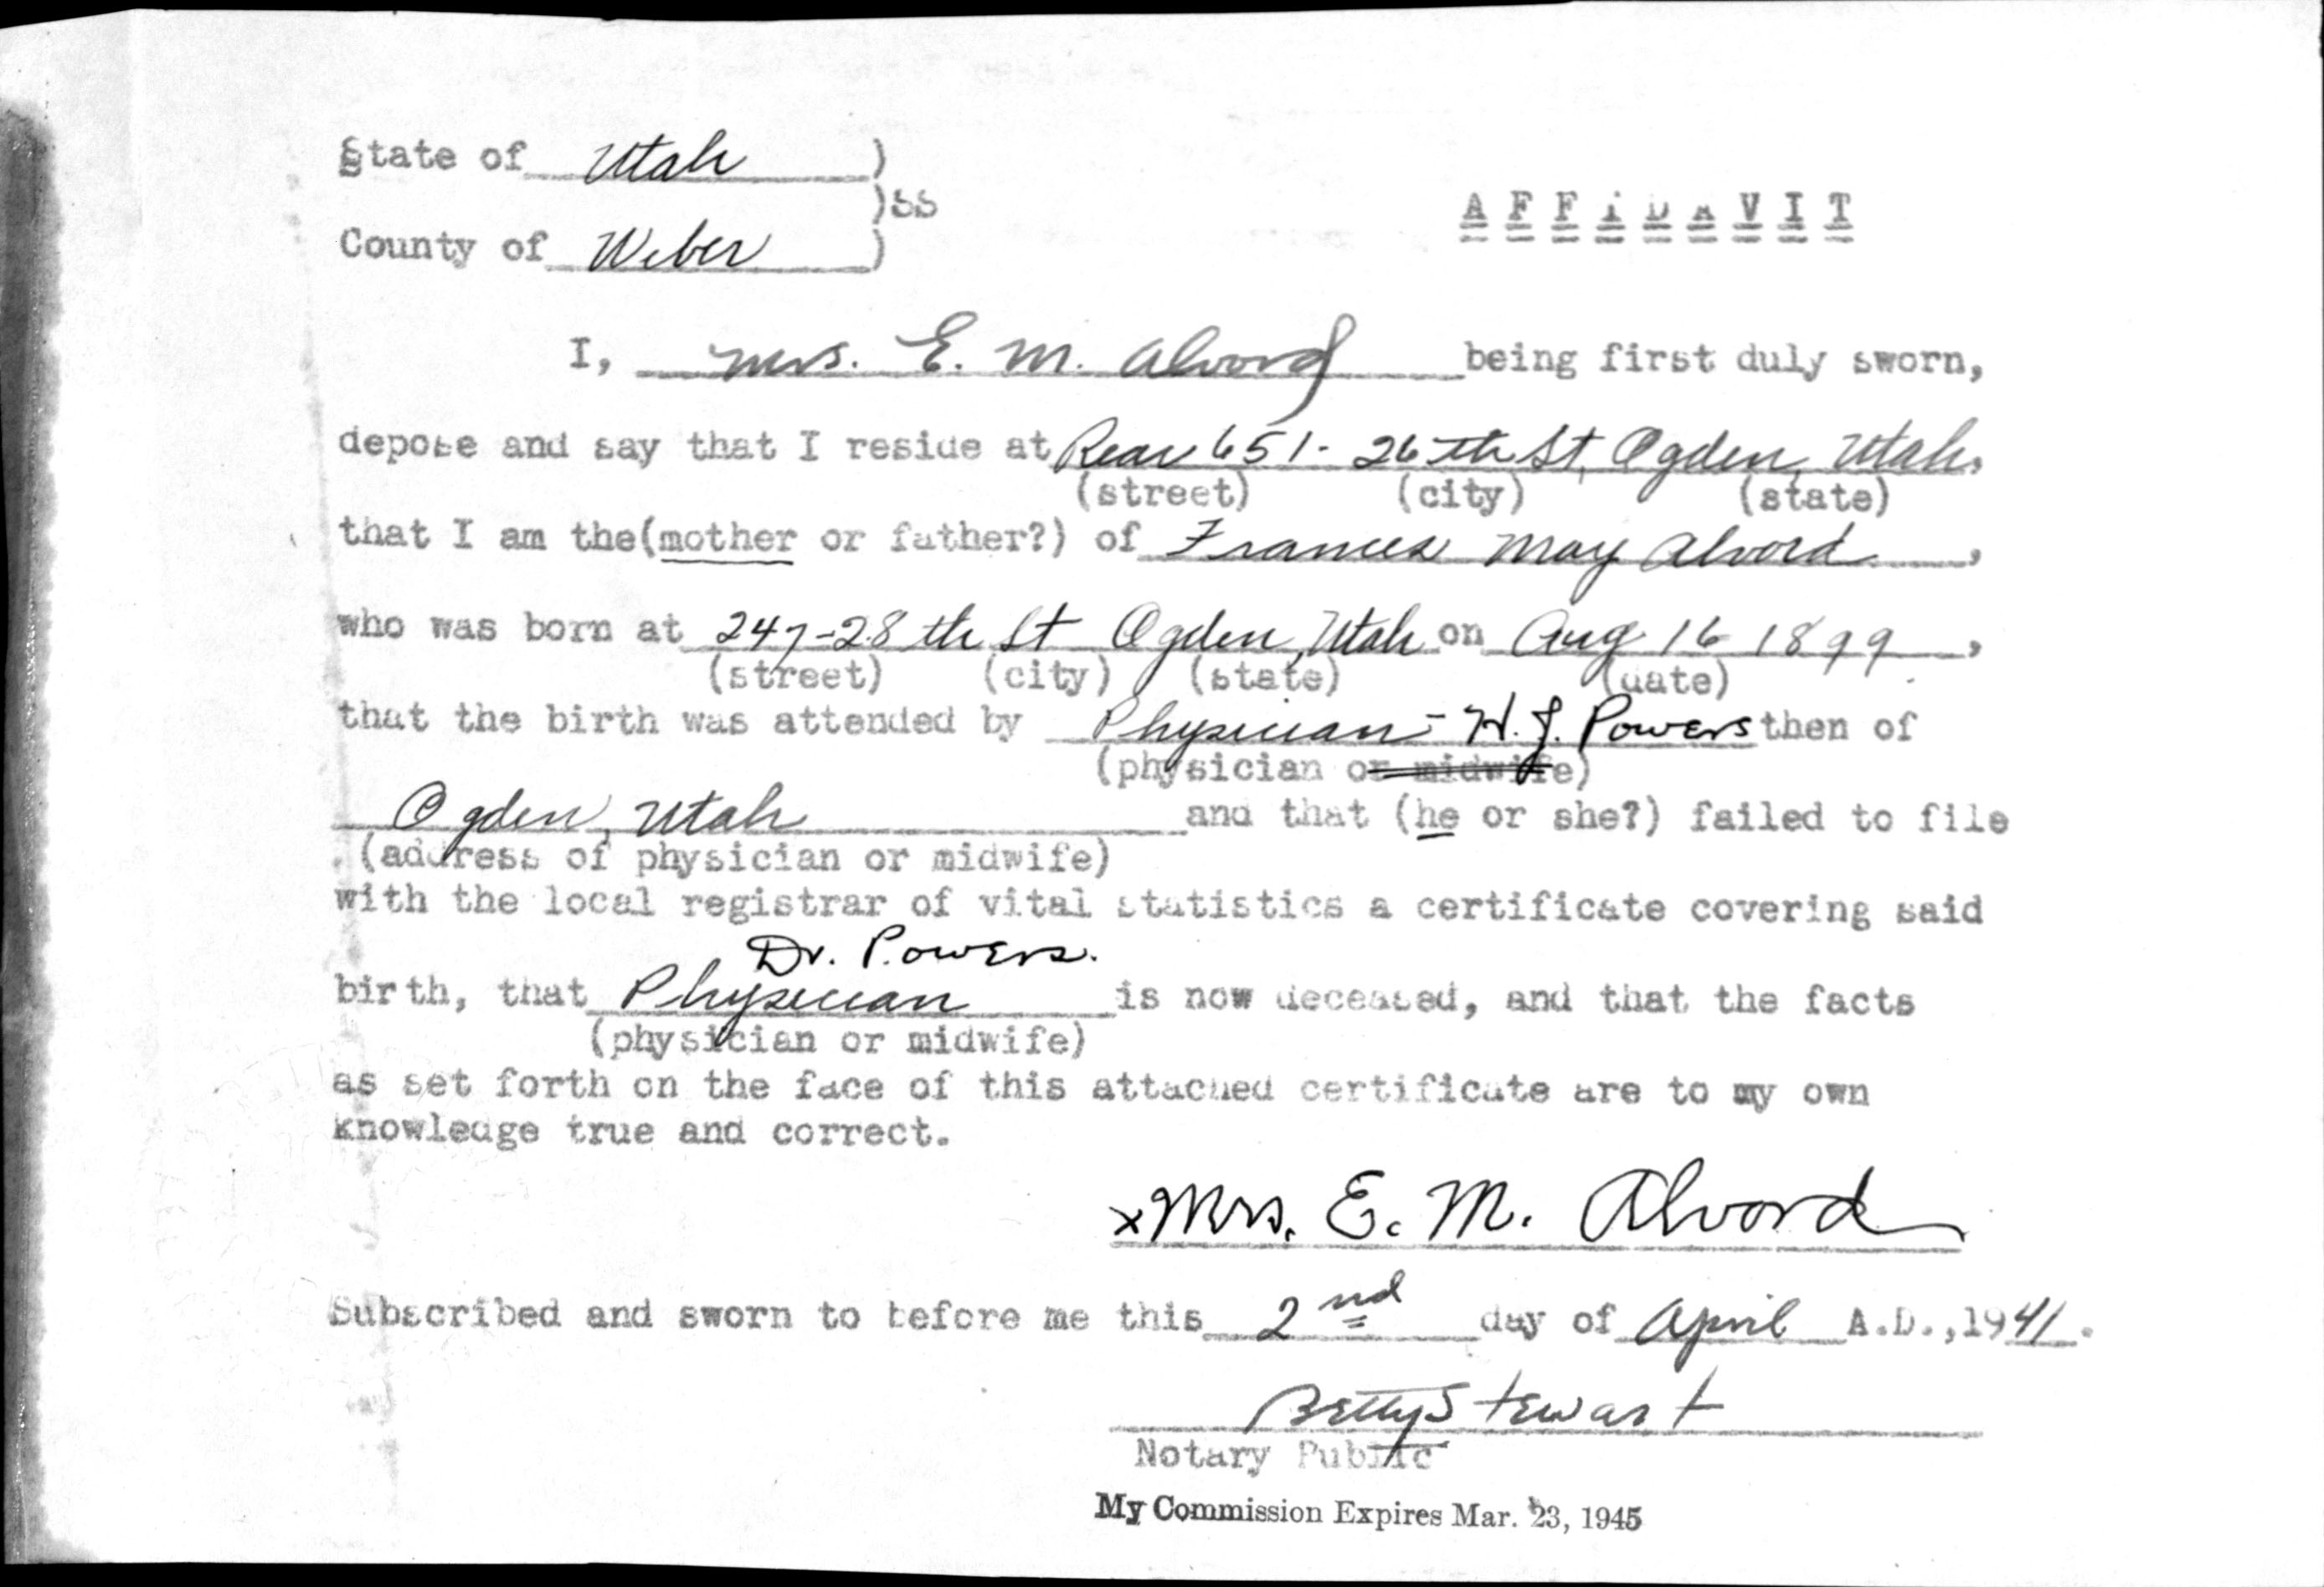 State of Utah )
)SS
County of Weber )
A F F I D A V I T
I, Mrs. E. M. Alvord being first duly sworn,
depose and say that I reside at Rear 651 - 26th St, Ogden, Utah.
(street) (city) (state)
that I am the(mother or father?) of Frances May Alvord ,
who was born at 247-28th St Ogden, Utah on Aug 16 1899 ,
(street) (city) (state) (date)
that the birth was attended by Physician - H. J. Powers then of
(physician or midwife)
Ogden, Utah and that (he or she?) failed to file
(address of physician or midwife)
with the local registrar of vital statistics a certificate covering said
Dr. Powers.
birth, that Physician is now deceased, and that the facts
(physician or midwife)
as set forth on the face of this attached certificate are to my own
knowledge true and correct.
x Mrs. E. M. Alvord
Subscribed and sworn to before me this 2nd day of April A.D.,1941.
Betty Stewart
Notary Public
My Commission Expires Mar. 23, 1945